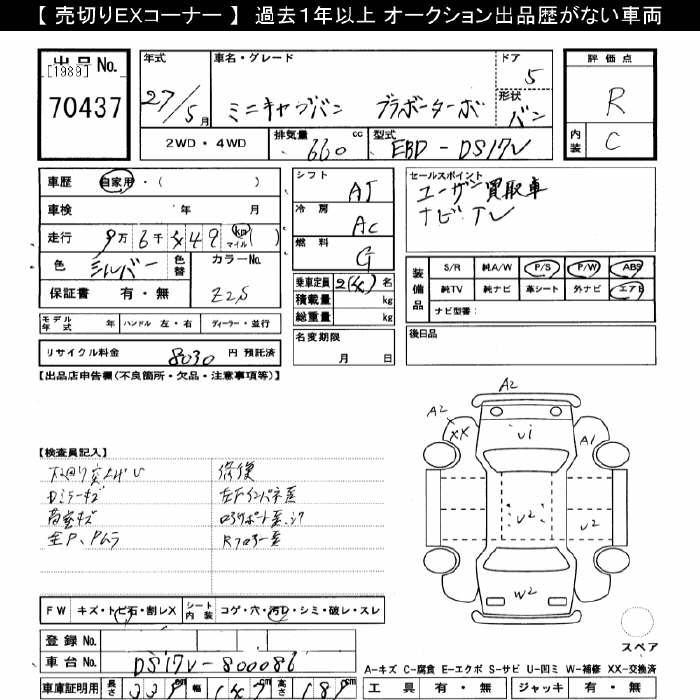 【 売切りEXコーナー 】 過去1年以上 オークション出品歴がない車両
出品 No.
[1989]
70437
年式
27/5月
車名・グレード
ミニキャブバン ブラボーターボ
ドア
5
形状
バン
2WD・4WD
排気量
660 cc
型式
EBD-DS17V
評価点
R
内装
C
車歴 自家用・( )
車検 年 月
走行 9万6千 49 km マイル ( )
色 シルバー 色替
カラーNo.
Z2S
保証書 有・無
モデル年式 年 ハンドル 左・右 ディーラー・並行
リサイクル料金 8030 円 預託済
シフト
AT
冷房
AC
燃料
G
乗車定員 2(4) 名
積載量 kg
総重量 kg
名変期限
月 日
セールスポイント
ユーザー買取車
ナビ・TV
装備品
S/R 純A/W P/S P/W ABS
純TV 純ナビ 革シート 外ナビ エアB
ナビ型番:
後日品
【出品店申告欄(不良箇所・欠品・注意事項等)】
【検査員記入】
修復
A2
A2
XX
U1
A1
U2
U2
W2
スペア
FW キズ・トビ石・割レX シート内装 コゲ・穴・汚レ・シミ・破レ・スレ
登録 No.
車台 No. DS17V-800086
車庫証明用 長さ 339 cm 幅 147 cm 高さ 189 cm
A-キズ C-腐食 E-エクボ S-サビ U-凹ミ W-補修 XX-交換済
工具 有・無 ジャッキ 有・無